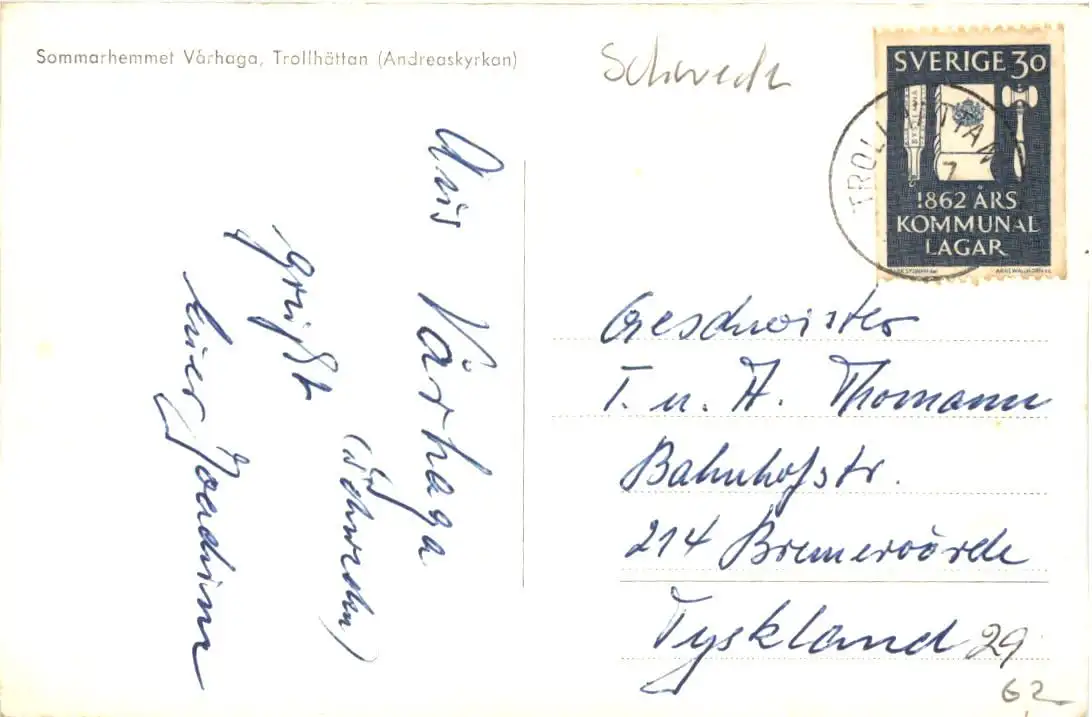 Sommarhemmet Vårhaga, Trollhättan (Andreaskyrkan)
Schwed
SVERIGE 30
SYSTEMNA
1862 ÅRS
KOMMUNAL
LAGAR
TROLLHÄTTAN
7
Aus Vårhaga
(Schweden)
grüßt
Euer Joachim
Geschwister
T. u. H. Thomann
Bahnhofstr.
214 Bremervörde
Tyskland
29
62